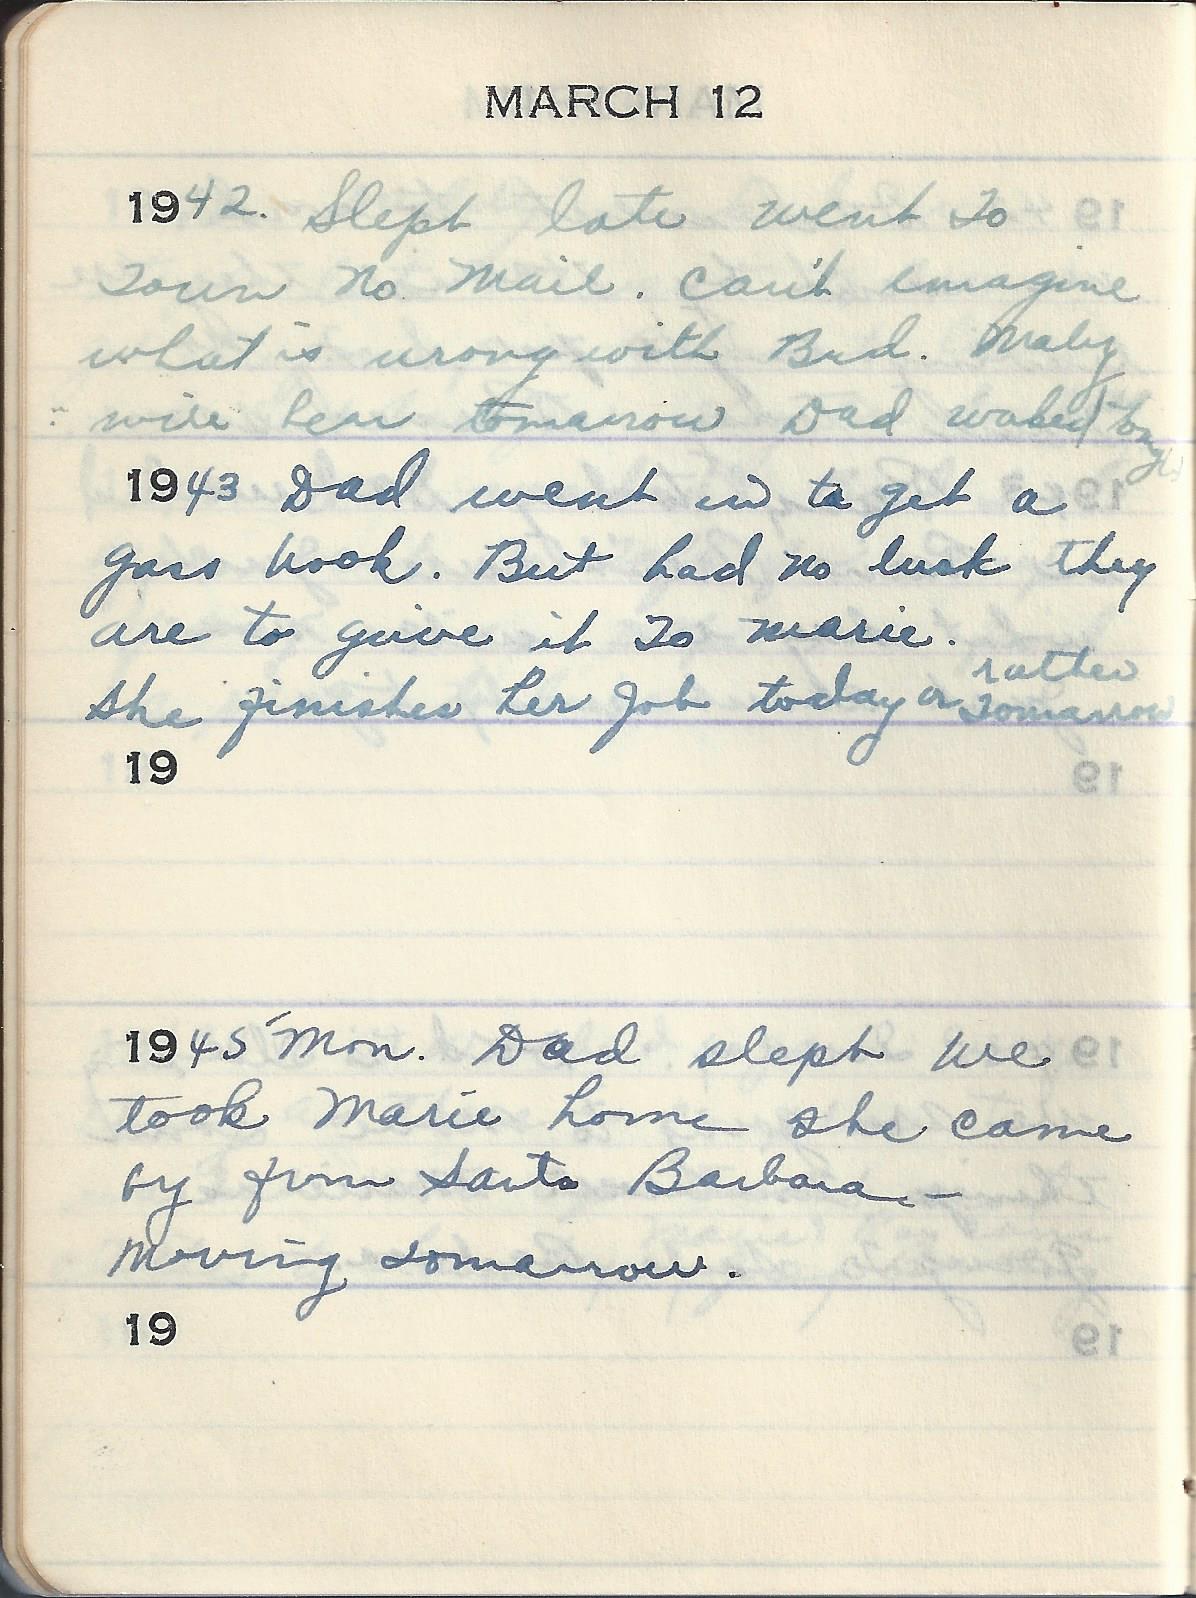 MARCH 12
1942. Slept late went To
Town No Mail. Can't emagine
what is wrong with Bud. Maby
will hear tomarrow Dad waked
1943 Dad went in to get a
gass book. But had no luck they
are to guive it To marie.
rather
She finishes her Job today or Tomarrow
19
1945 Mon. Dad slept We
took Marie home she came
by from Santa Barbara -
Moving Tomarrow.
19